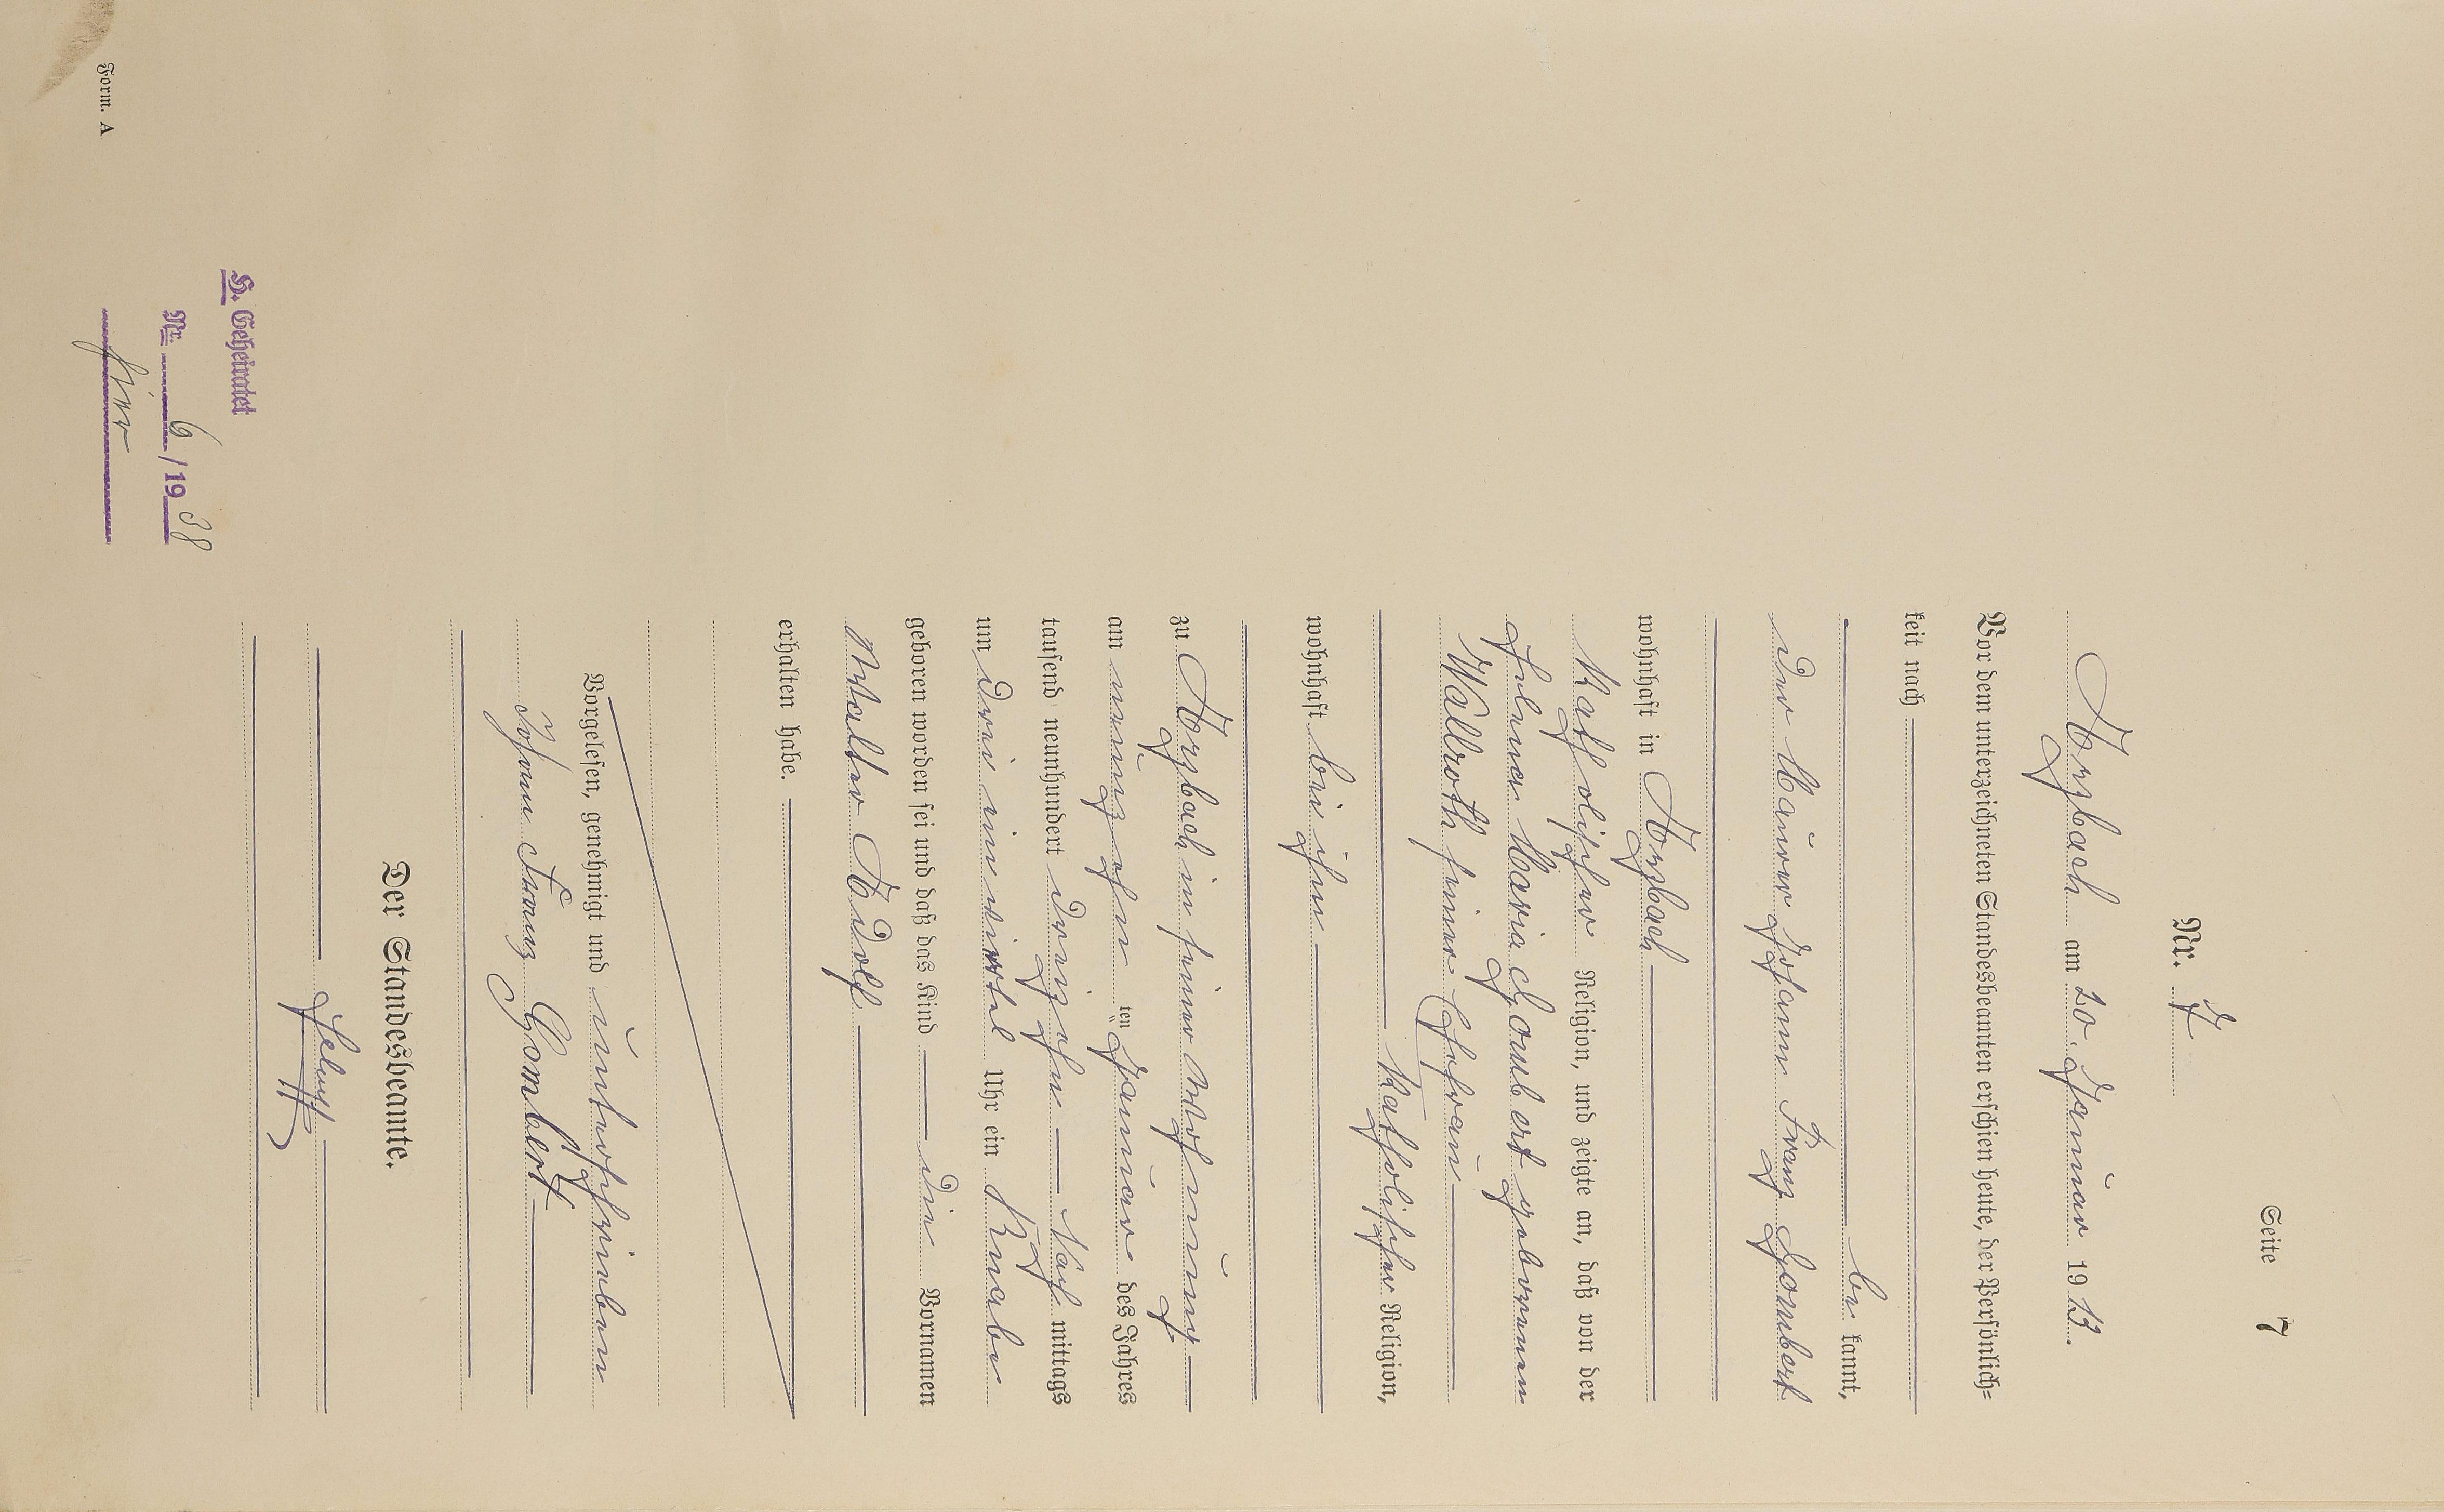 Seite 7
Nr. 7
Arzbach am 20. Januar 1913.
Vor dem unterzeichneten Standesbeamten erschien heute, der Persönlich=
keit nach
be kannt,
der Maurer Johann Franz Gombert
wohnhaft in Arzbach
Katholischer Religion, und zeigte an, daß von der
Helena Maria Gombert geborenen
Wallroth seiner Ehefrau
Katholischer Religion,
wohnhaft bei ihm
zu Arzbach in seiner Wohnung
am neunzehn ten Januar des Jahres
tausend neunhundert dreizehn Nach mittags
um drei ein viertel Uhr ein Knabe
geboren worden sei und daß das Kind die Vornamen
Walter Adolf
erhalten habe.
Vorgelesen, genehmigt und unterschrieben
Johann Franz Gombert
Der Standesbeamte.
H. Geheiratet
Nr. 6/1938
hier
Form. A